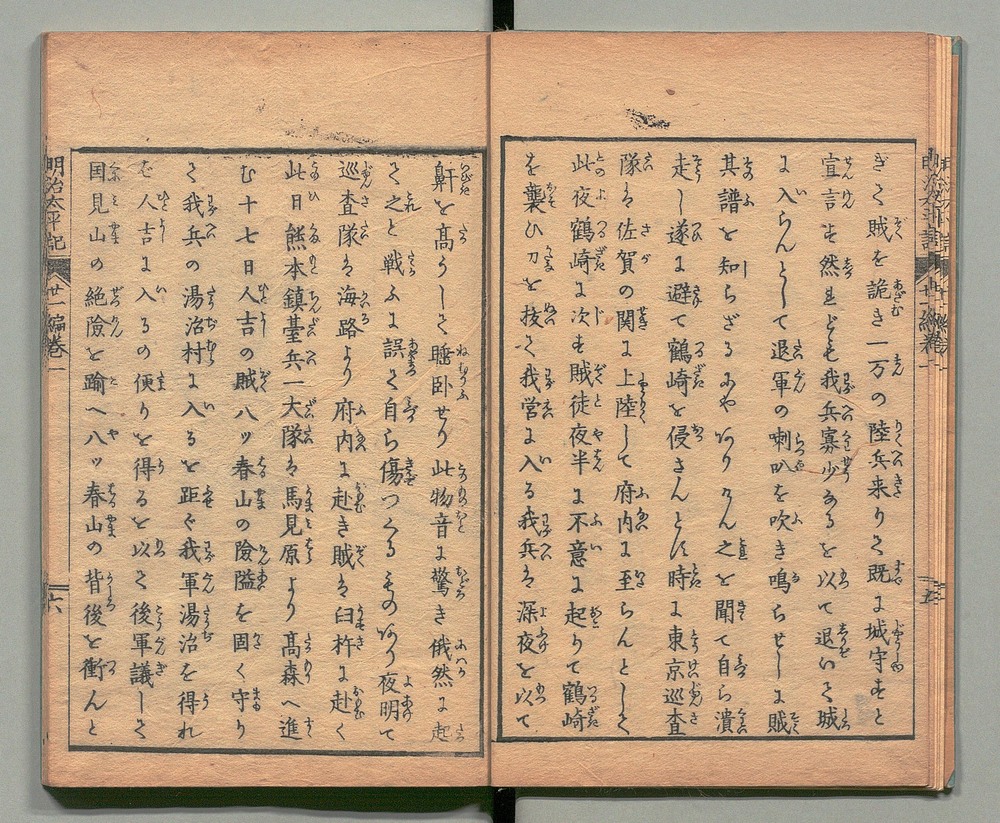 ぎて賊を詭き一万の陸兵来りて既に城守すと
宣言す然ども我兵寡少なるを以て退いて城
に入らんとして退軍の喇叭を吹き鳴らせしに賊
其譜を知らざるにやありけん之を聞て自ら潰
走し遂に避て鶴崎を侵さんとす時に東京巡査
隊は佐賀の関に上陸して府内に至らんとして
此夜鶴崎に次す賊徒夜半に不意に起りて鶴崎
を襲ひ刀を抜て我営に入る我兵は深夜を以て
鼾を高うして睡臥せり此物音に驚き俄然に起
て之と戦ふに誤て自ら傷つくるものあり夜明て
巡査隊は海路より府内に赴き賊は臼杵に赴く
此日熊本鎮臺兵一大隊は馬見原より高森へ進
む十七日人吉の賊八ッ春山の険隘を固く守り
て我兵の湯治村に入るを距ぐ我軍湯治を得れ
ば人吉に入るの便りを得るを以て後軍議して
国見山の絶険を踰へ八ッ春山の背後を衝んと
明治太平記
廿一編巻一
六